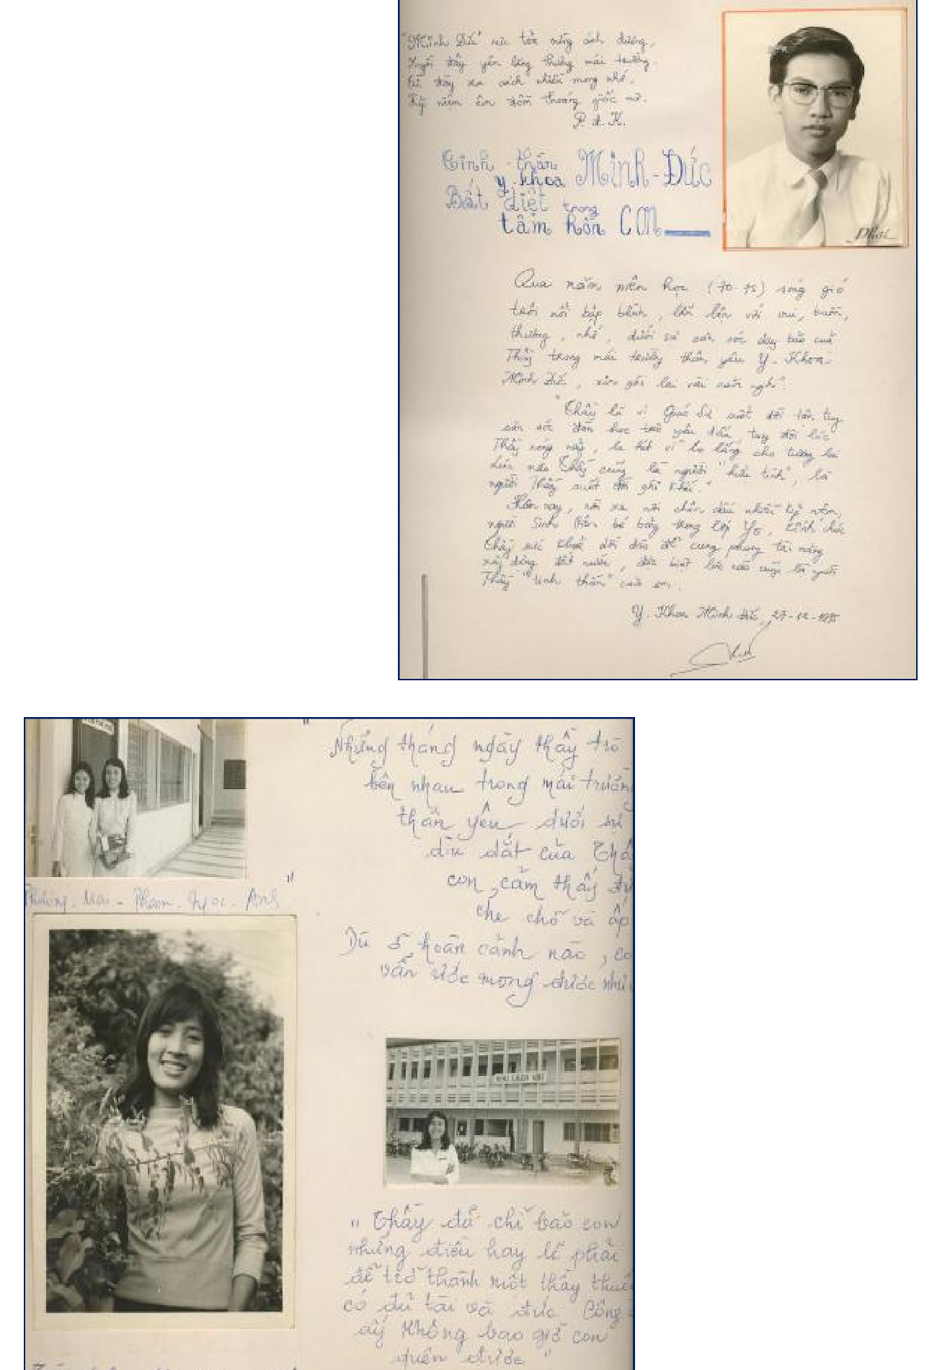 "Minh Đức" rực tỏa sáng ánh dương,
đây yên lặng mái trường.
xa cách nhiều mong nhớ,
Kỷ niệm êm đềm thoáng giấc mơ.
P. d. K.
Tinh thần
y khoa Minh-Đức
Bất diệt trong
tâm hồn con
Phát
Qua năm niên học (70-75) sóng gió
trôi nổi bập bềnh, lẫn lộn với vui, buồn,
thương, nhớ, dưới sự săn sóc dạy bảo của
Thầy trong mái trường thân yêu Y-Khoa
Minh Đức, xin ghi lại vài cảm nghĩ:
"Thầy là vị Giáo Sư suốt đời tận tụy
săn sóc đàn học trò yêu dấu, tuy đôi lúc
Thầy nóng nảy, la hét vì lo lắng cho tương lai
lúc nào Thầy cũng là người "hữu tình", là
người Thầy suốt đời ghi khắc."
Hôm nay, rời xa nơi chôn dấu nhiều kỷ niệm,
người Sinh Viên bé bỏng trong lớp Y6, kính chúc
Thầy sức khoẻ dồi dào để cung phụng tài năng
xây dựng đất nước, lúc nào cũng là người
Thầy "tinh thần" của em.
Y-Khoa Minh Đức, 27-12-1975
"Những tháng ngày thầy trò
bên nhau trong mái trường
thân yêu dưới sự
dìu dắt của Thầ
con, cảm thấy đư
che chở và ấp
Dù ở hoàn cảnh nào, co
vẫn ước mong được như
"
Phương. Mai - Phạm. Ngọc. Anh
"Thầy đã chỉ bảo con
những điều hay lẽ phải
để trở thành một thầy thuố
có đủ tài và đức. Công
ấy không bao giờ con
quên được"